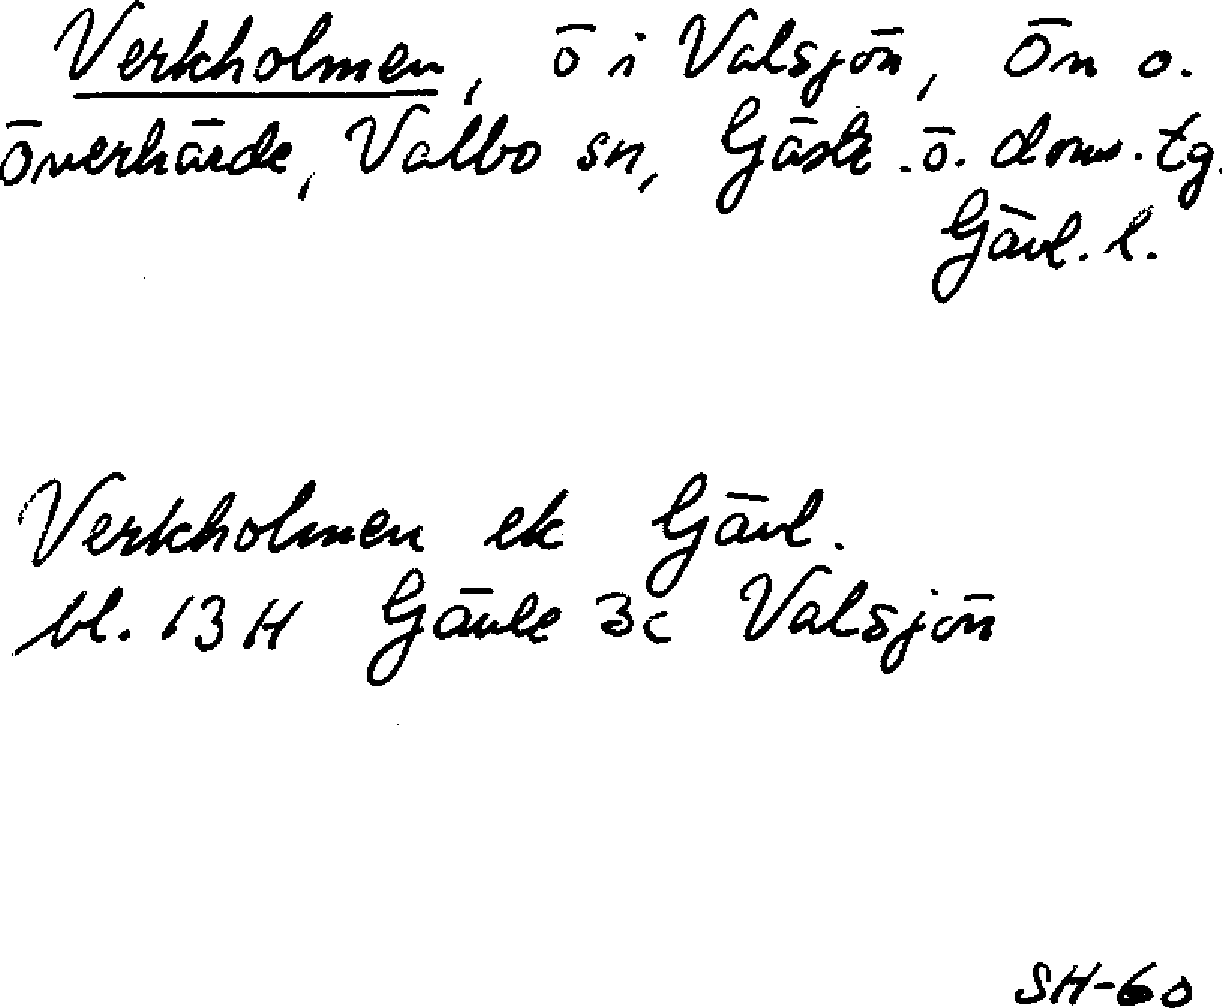 Verkholmen, ö i Valsjön, Ön o.
Överhärde, Valbo sn, Gästr. ö. doms. tg.
Gävl. l.
Verkholmen ek Gävl.
bl. 13 H Gävle 3c Valsjön
SH-60